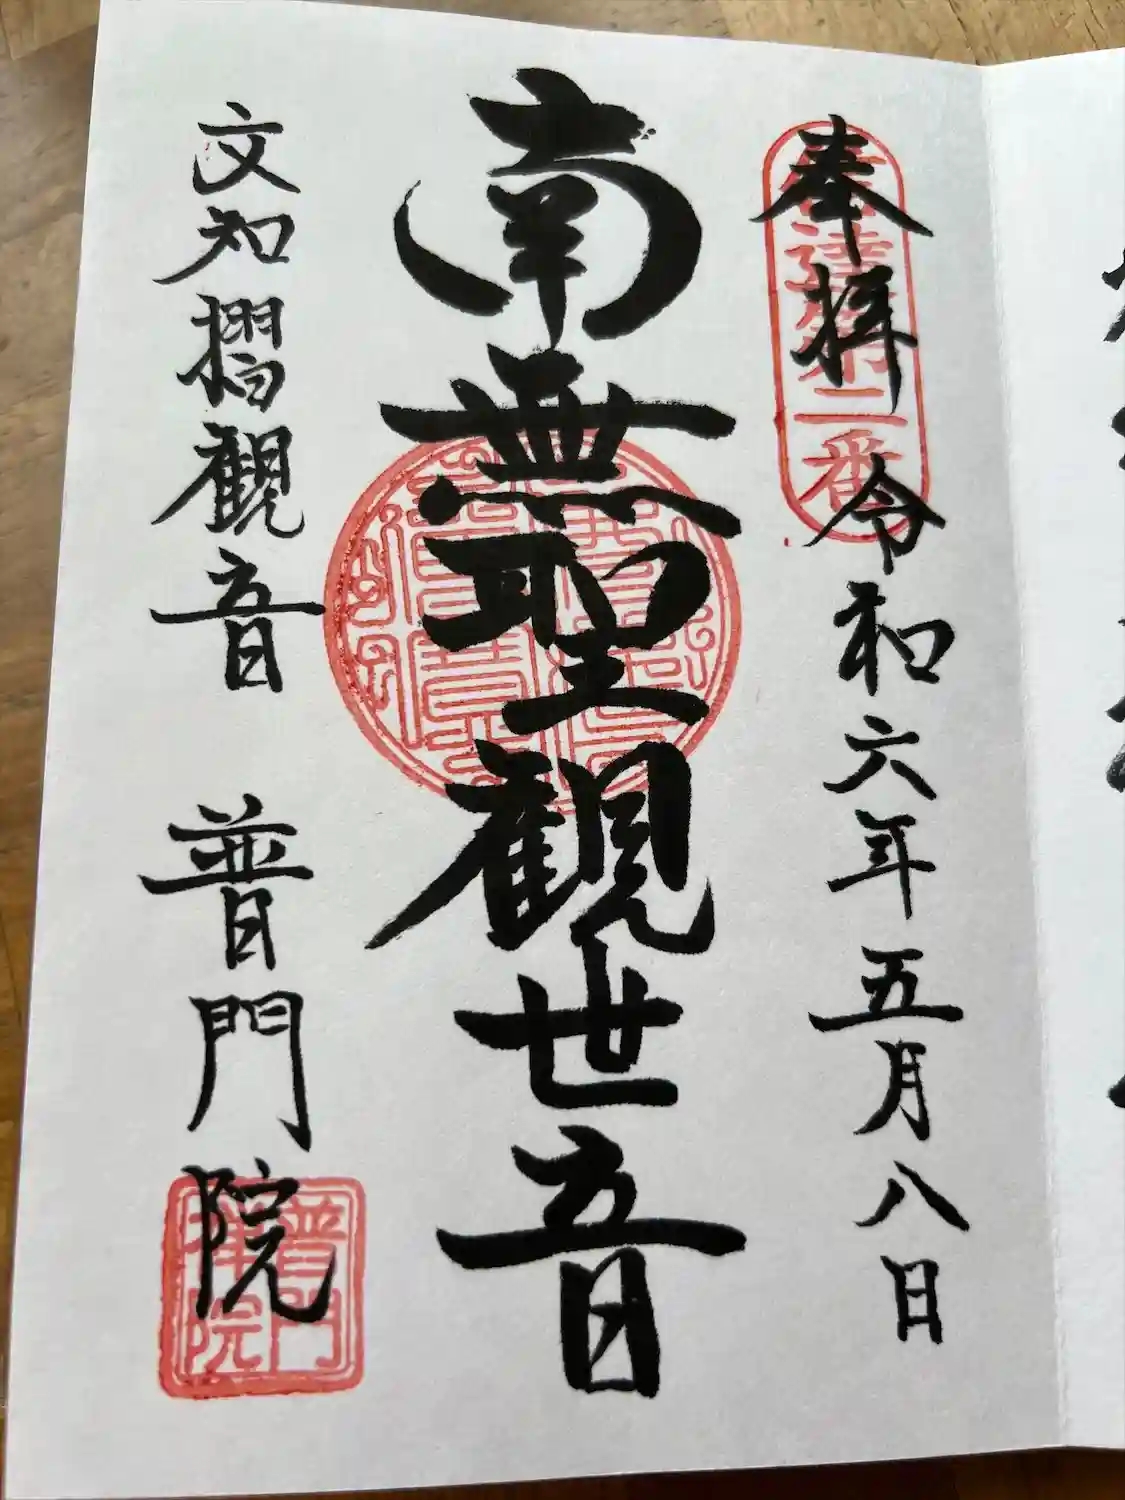 奉拝 令和六年五月八日
達第二番
南無聖観世音
文知摺観音 普門院
普門
院